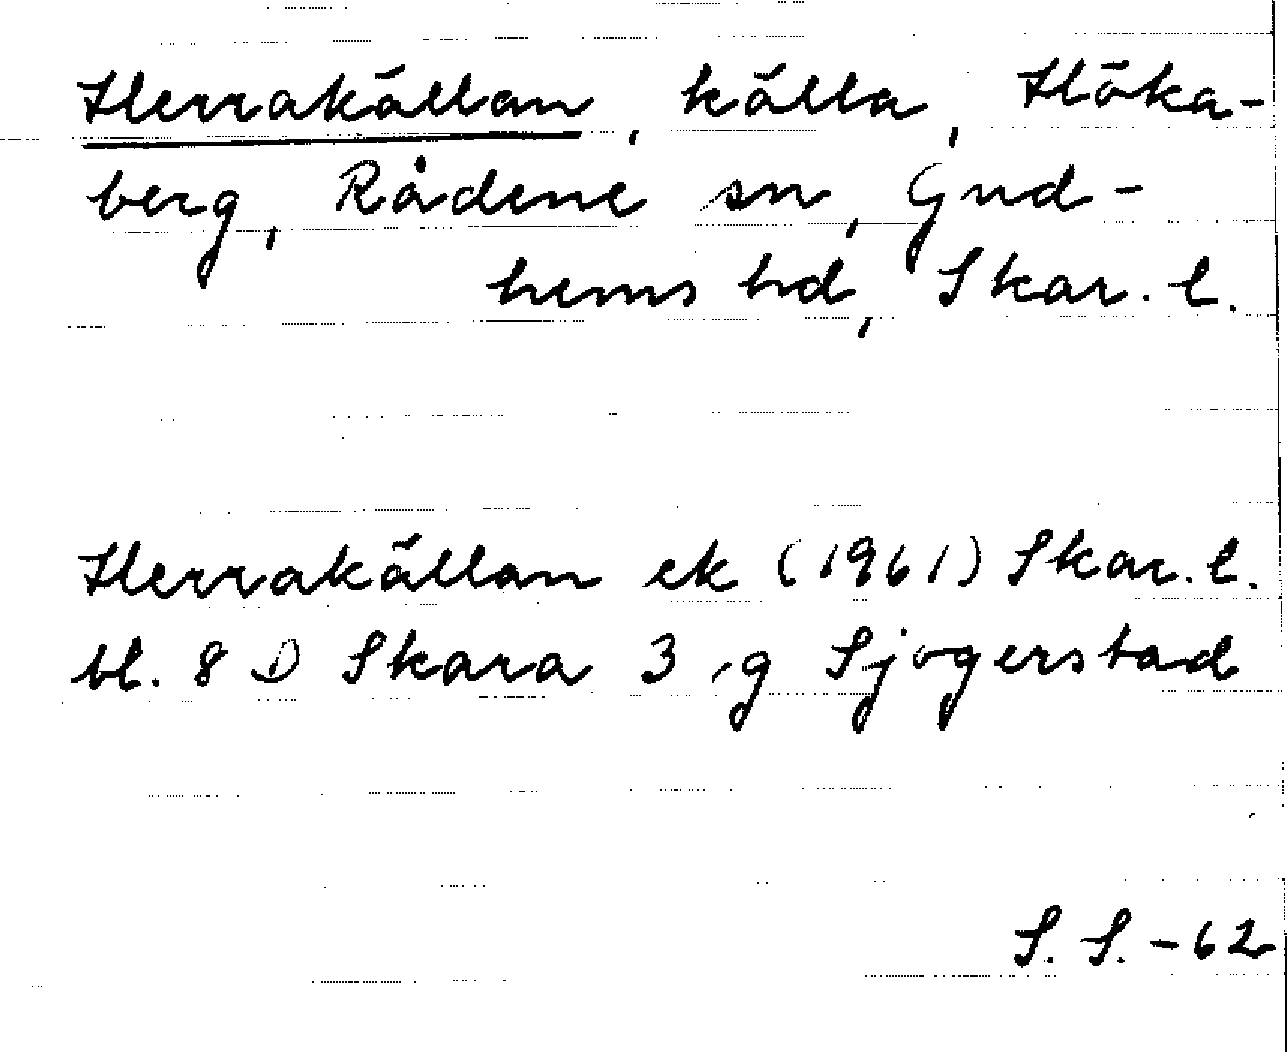 Herrakällan, källa, Höka-
berg, Rådene sn, Gud-
hems hd, Skar. l.
Herrakällan ek (1961) Skar. l.
bl. 8 D Skara 3 g Sjogerstad
S. S. -62